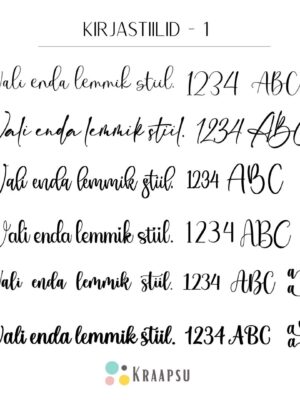 KIRJASTIILID - 1
Vali enda lemmik stiil. 1234 ABC
Vali enda lemmik stiil. 1234 ABC
Vali enda lemmik stiil. 1234 ABC
Vali enda lemmik stiil. 1234 ABC
Vali enda lemmik stiil. 1234 ABC
Vali enda lemmik stiil. 1234 ABC
KRAAPSU